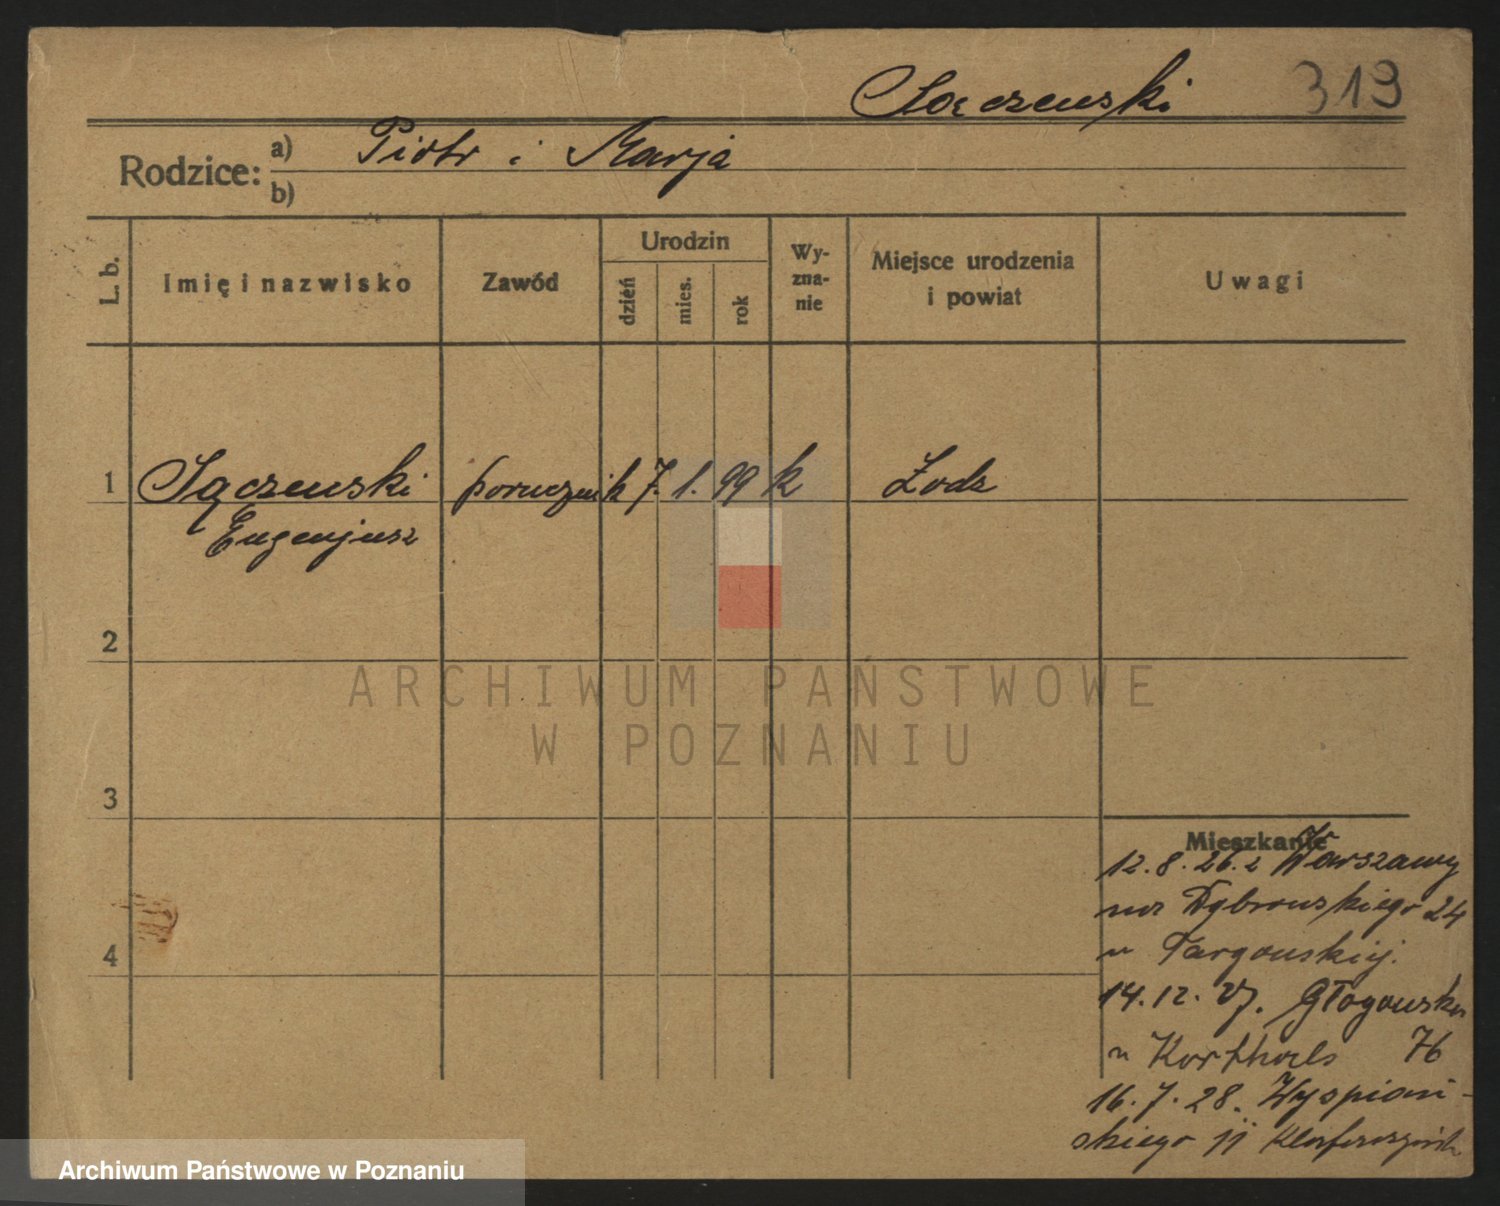 Sączewski 319
Rodzice: a) Piotr i Marja
b)
L. b. Imię i nazwisko Zawód Urodzin dzień mies. rok Wy-zna-nie Miejsce urodzenia i powiat Uwagi
1 Sączewski porucznik 7. 1. 99 k Łodz
Eugenjusz
2
ARCHIWUM PAŃSTWOWE
W POZNANIU
3
Mieszkanie
12.8.26. z Warszawy
na Dąbrowskiego 24
u Targowskiej.
4
14.12.27. Głogowska
u Korthals 76
16.7.28. Wyspiań-
skiego 11
Archiwum Państwowe w Poznaniu